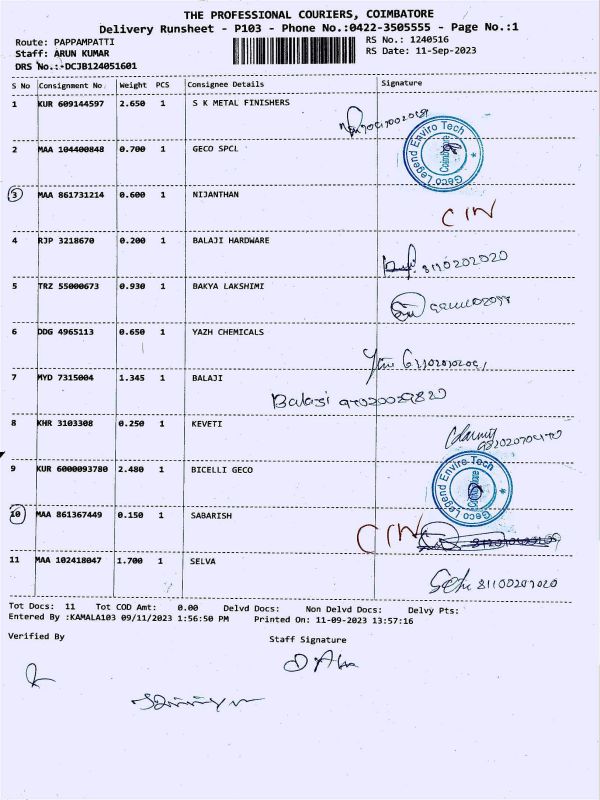 THE PROFESSIONAL COURIERS, COIMBATORE
Delivery Runsheet - P103 - Phone No.:0422-3505555 - Page No.:1
Route: PAPPAMPATTI
RS No.: 1240516
Staff: ARUN KUMAR
RS Date: 11-Sep-2023
DRS No.:-DCJB124051601
S No Consignment No Weight PCS Consignee Details Signature
1 KUR 609144597 2.650 1 S K METAL FINISHERS
2 MAA 104400848 0.700 1 GECO SPCL
Geco Legend Enviro Tech
Coimbatore
3 MAA 861731214 0.600 1 NIJANTHAN
CIN
4 RJP 3218670 0.200 1 BALAJI HARDWARE
5 TRZ 55000673 0.930 1 BAKYA LAKSHIMI
6 DDG 4965113 0.650 1 YAZH CHEMICALS
7 MYD 7315004 1.345 1 BALAJI
Balaji
8 KHR 3103308 0.250 1 KEVETI
9 KUR 6000093780 2.480 1 BICELLI GECO
Geco Legend Enviro Tech
Coimbatore
10 MAA 861367449 0.150 1 SABARISH
CIN
11 MAA 102418047 1.700 1 SELVA
Tot Docs: 11 Tot COD Amt: 0.00 Delvd Docs: Non Delvd Docs: Delvy Pts:
Entered By :KAMALA103 09/11/2023 1:56:50 PM Printed On: 11-09-2023 13:57:16
Verified By
Staff Signature